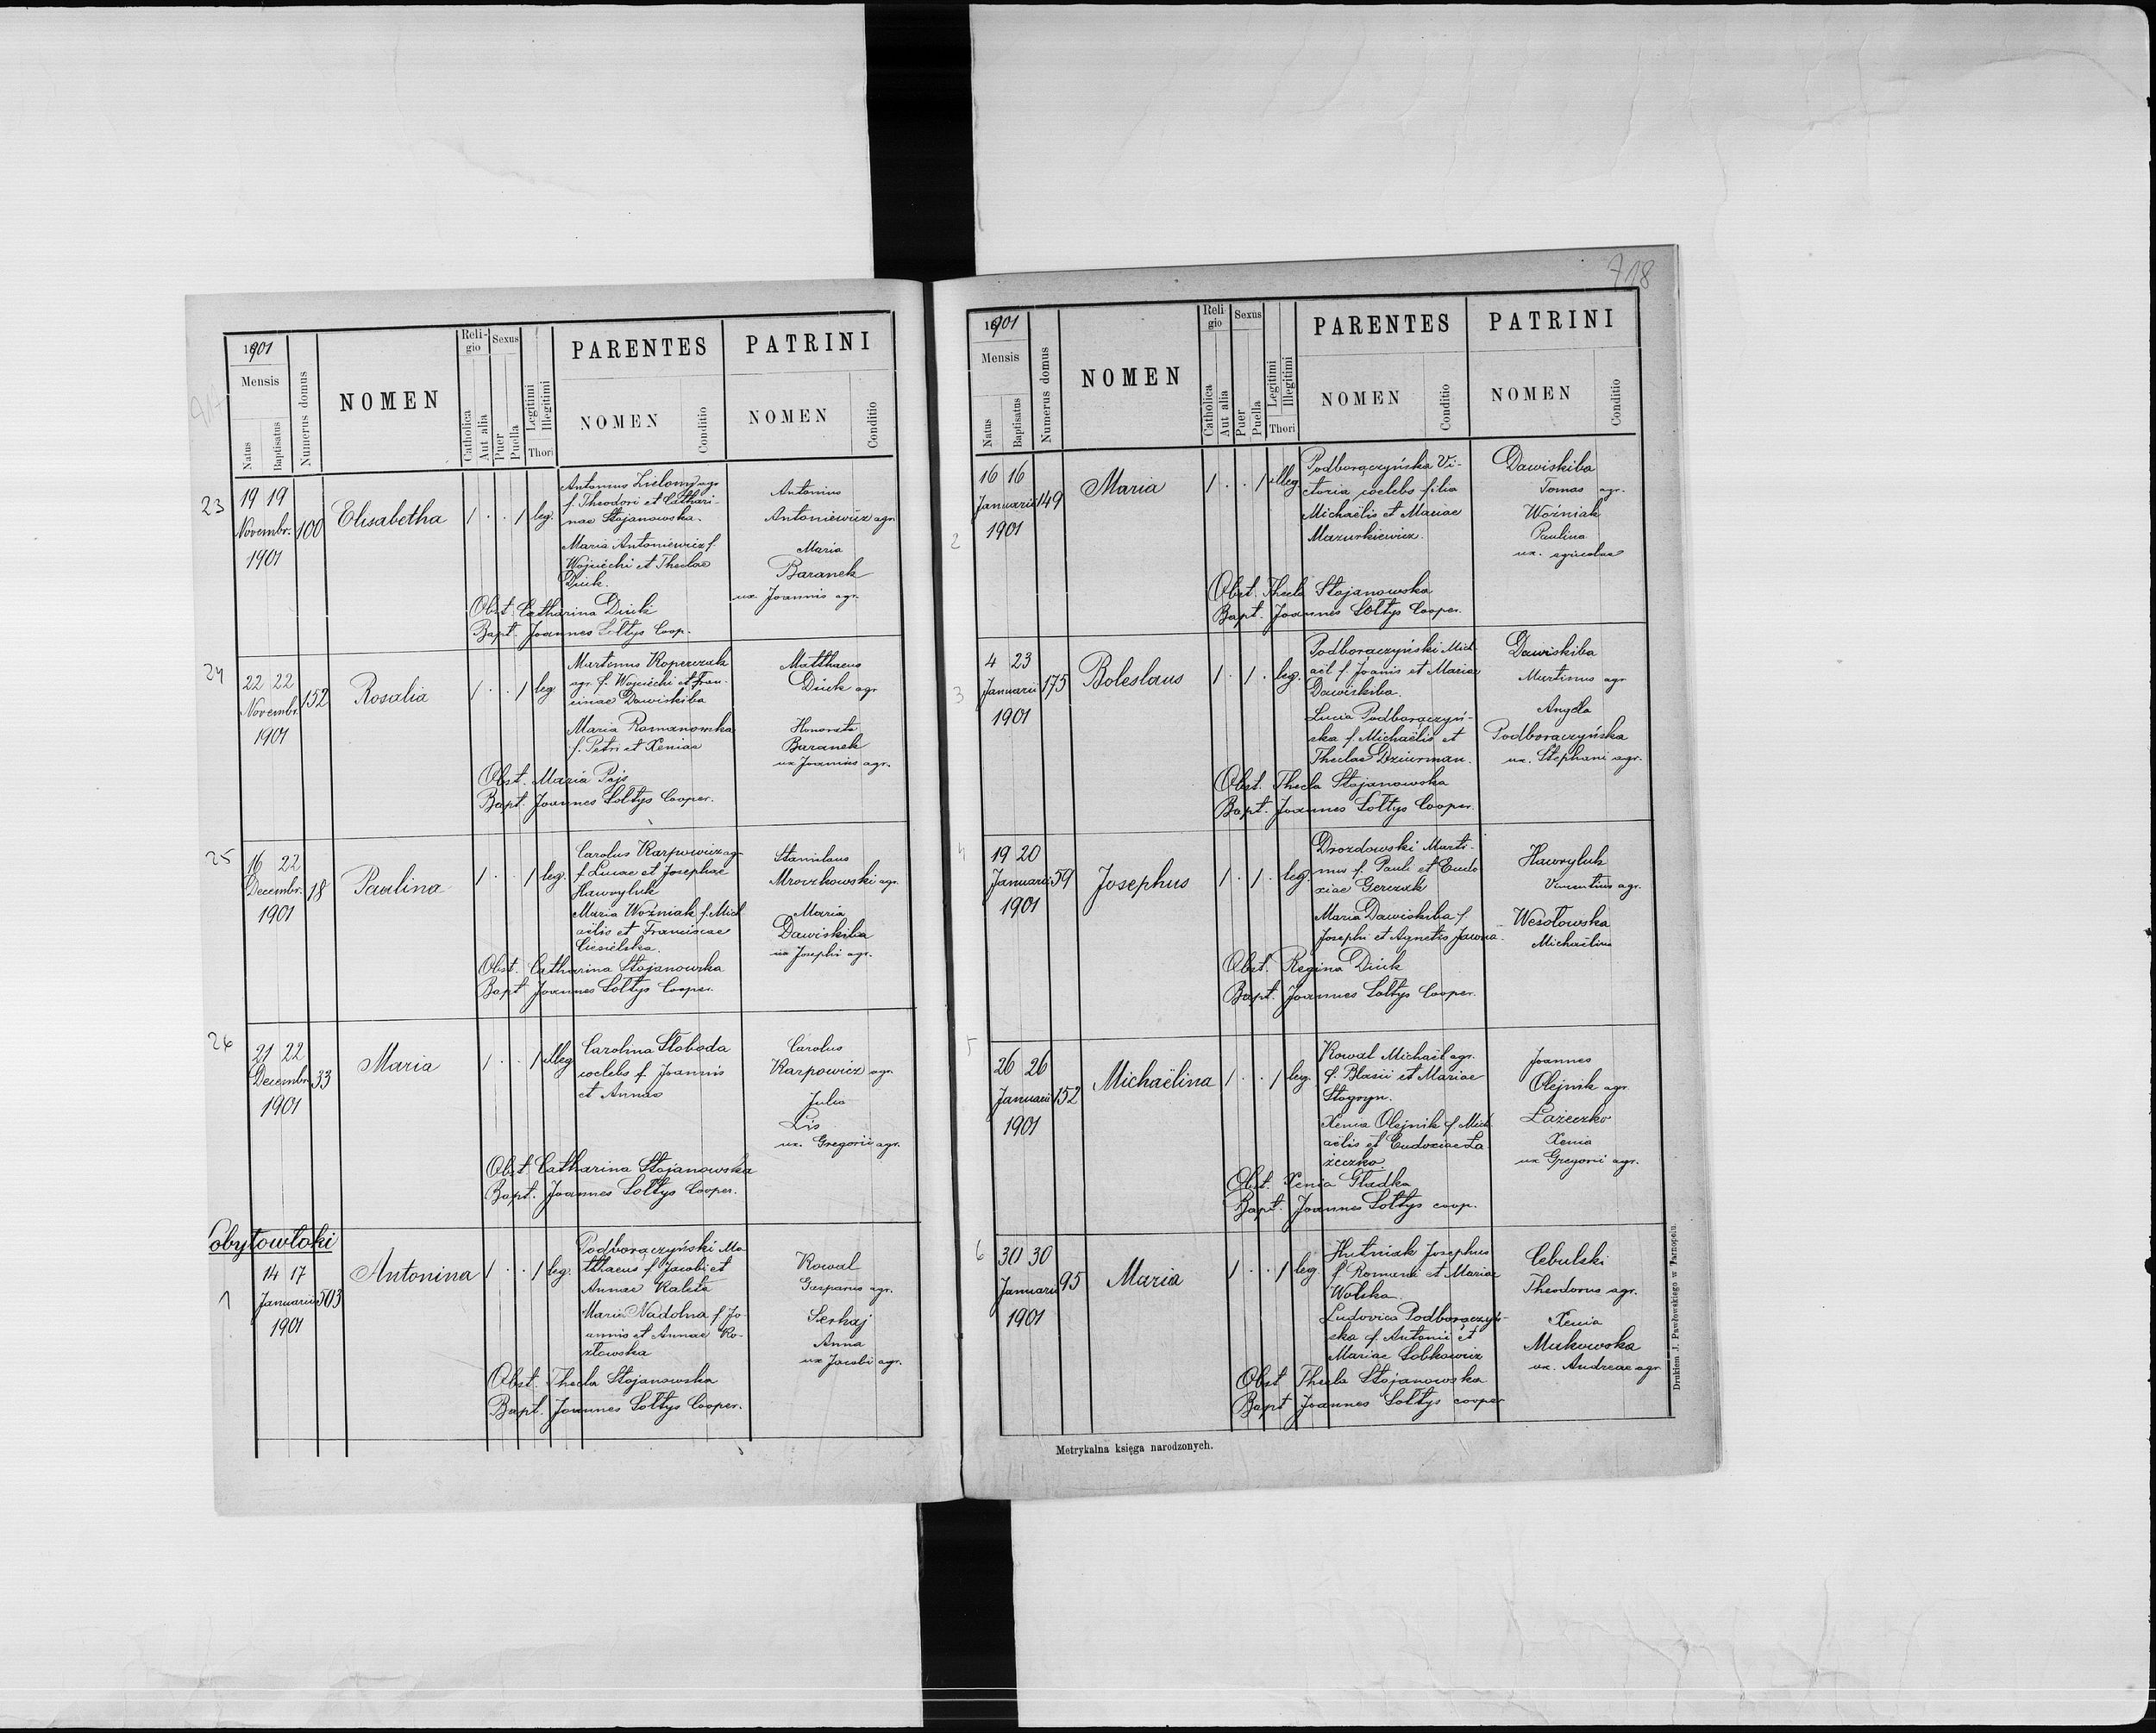 1901
Mensis
Natus
Baptisatus
Numerus domus
NOMEN
Reli-
gio
Catholica
Aut alia
Sexus
Puer
Puella
Legitimi
Illegitimi
Thori
PARENTES
NOMEN
Conditio
PATRINI
NOMEN
Conditio
23
19 19
Novembr.
1901
100
Elisabetha
1 . . 1 leg.
Antonius Zielony agr
f. Theodori et Cathari-
nae Stojanowska.
Maria Antoniewicz f.
Wojciechi et Theclae
Diuk.
Antonius
Antoniewicz agr.
Maria
Baranek
ux. Joannis agr.
Obst. Catharina Diuk
Bapt. Joannes Sołtys Coop.
24
22 22
Novembr.
1901
152
Rosalia
1 . . 1 leg.
Martinus Koperczak
agr. f. Wojciechi et Fran-
cinae Dawiskiba
Maria Romanowska
f. Petri et Xeniae
Matthaeus
Diuk agr
Honorata
Baranek
ux Joannis agr.
Obst. Maria Pajs
Bapt. Joannes Sołtys Cooper.
25
16 22
Decembr.
1901
18
Paulina
1 . . 1 leg.
Carolus Karpowicz agr
f. Lucae et Josephae
Hawryluk
Maria Woźniak f. Mich
aëlis et Franciscae
Ciesielska.
Stanislaus
Mroczkowski agr.
Maria
Dawiskiba
ux Josephi agr.
Obst. Catharina Stojanowska
Bapt. Joannes Sołtys Cooper.
26
21 22
Decembr.
1901
33
Maria
1 . . 1 illeg
Carolina Słoboda
coelebs f. Joannis
et Annae
Carolus
Karpowicz agr.
Julia
Lis
ux. Gregorii agr.
Obst. Catharina Stojanowska
Bapt. Joannes Sołtys Cooper.
Cobytowloki
1
14 17
Januarii
1901
503
Antonina
1 . . 1 leg.
Podborączyński Ma-
tthaeus f. Jacobi et
Annae Kaleta
Maria Nadolna f. Jo-
annis et Annae Ko-
złowska
Kowal
Gasparus agr.
Serhaj
Anna
ux Jacobi agr.
Obst. Thecla Stojanowska
Bapt. Joannes Sołtys Cooper.
718
1901
Mensis
Natus
Baptisatus
Numerus domus
NOMEN
Reli-
gio
Catholica
Aut alia
Sexus
Puer
Puella
Legitimi
Illegitimi
Thori
PARENTES
NOMEN
Conditio
PATRINI
NOMEN
Conditio
2
16 16
Januarii
1901
149
Maria
1 . . 1 illeg.
Podborączyńska Vi-
ctoria coelebs filia
Michaëlis et Mariae
Mazurkiewicz.
Dawiskiba
Tomas agr.
Woźniak
Paulina
ux. agricolae
Obst. Thecla Stojanowska
Bapt. Joannes Sołtys Cooper.
3
4 23
Januarii
1901
175
Boleslaus
1 . 1 . leg.
Podborączyński Mich
aël f. Joanis et Mariae
Dawiskiba.
Lucia Podborączyń-
ska f. Michaëlis et
Theclae Dziurman.
Dawiskiba
Martinus agr
Angela
Podborączyńska
ux. Stephani agr.
Obst. Thecla Stojanowska
Bapt. Joannes Sołtys Cooper.
4
19 20
Januarii
1901
59
Josephus
1 . 1 . leg.
Drozdowski Marti-
nus f. Pauli et Eudo
xiae Gerczak
Maria Dawiskiba f.
Josephi et Agnetis Jawna
Hawryluk
Vincentius agr.
Wesołowska
Michaëlina
Obst. Regina Diuk
Bapt. Joannes Sołtys Cooper.
5
26 26
Januarii
1901
152
Michaëlina
1 . . 1 leg.
Kowal Michaël agr.
f. Blasii et Mariae
Stogryn.
Xenia Olejnik f. Mich
aëlis et Eudoxiae Ła
żeczko.
Joannes
Olejnik agr
Łażeczko
Xenia
ux Gregorii agr.
Obst. Xenia Gładka
Bapt. Joannes Sołtys coop.
6
30 30
Januarii
1901
95
Maria
1 . . 1 leg.
Hutniak Josephus
f. Romani et Mariae
Wolska.
Ludovica Podborączyń-
ska f. Antonii et
Mariae Sobkowicz
Cebulski
Theodorus agr.
Xenia
Mukowska
ux. Andreae agr
Obst Thecla Stojanowska
Bapt Joannes Sołtys cooper
Metrykalna księga narodzonych.
Drukiem J. Pawłowskiego w Tarnopolu.